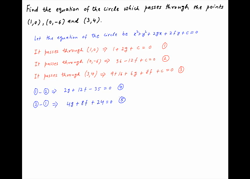 Find the equation of the circle which passes through the points
(1,0), (0,-6) and (3,4).
Let the equation of the circle be x²+y²+2gx+2fy+c=0
It passes through (1,0) ⇒ 1+2g+c=0 ①
It passes through (0,-6) ⇒ 36-12f+c=0 ②
It passes through (3,4) ⇒ 9+16+6g+8f+c=0 ③
①-② ⇒ 2g+12f-35=0 ④
③-① ⇒ 4g+8f+24=0 ⑤